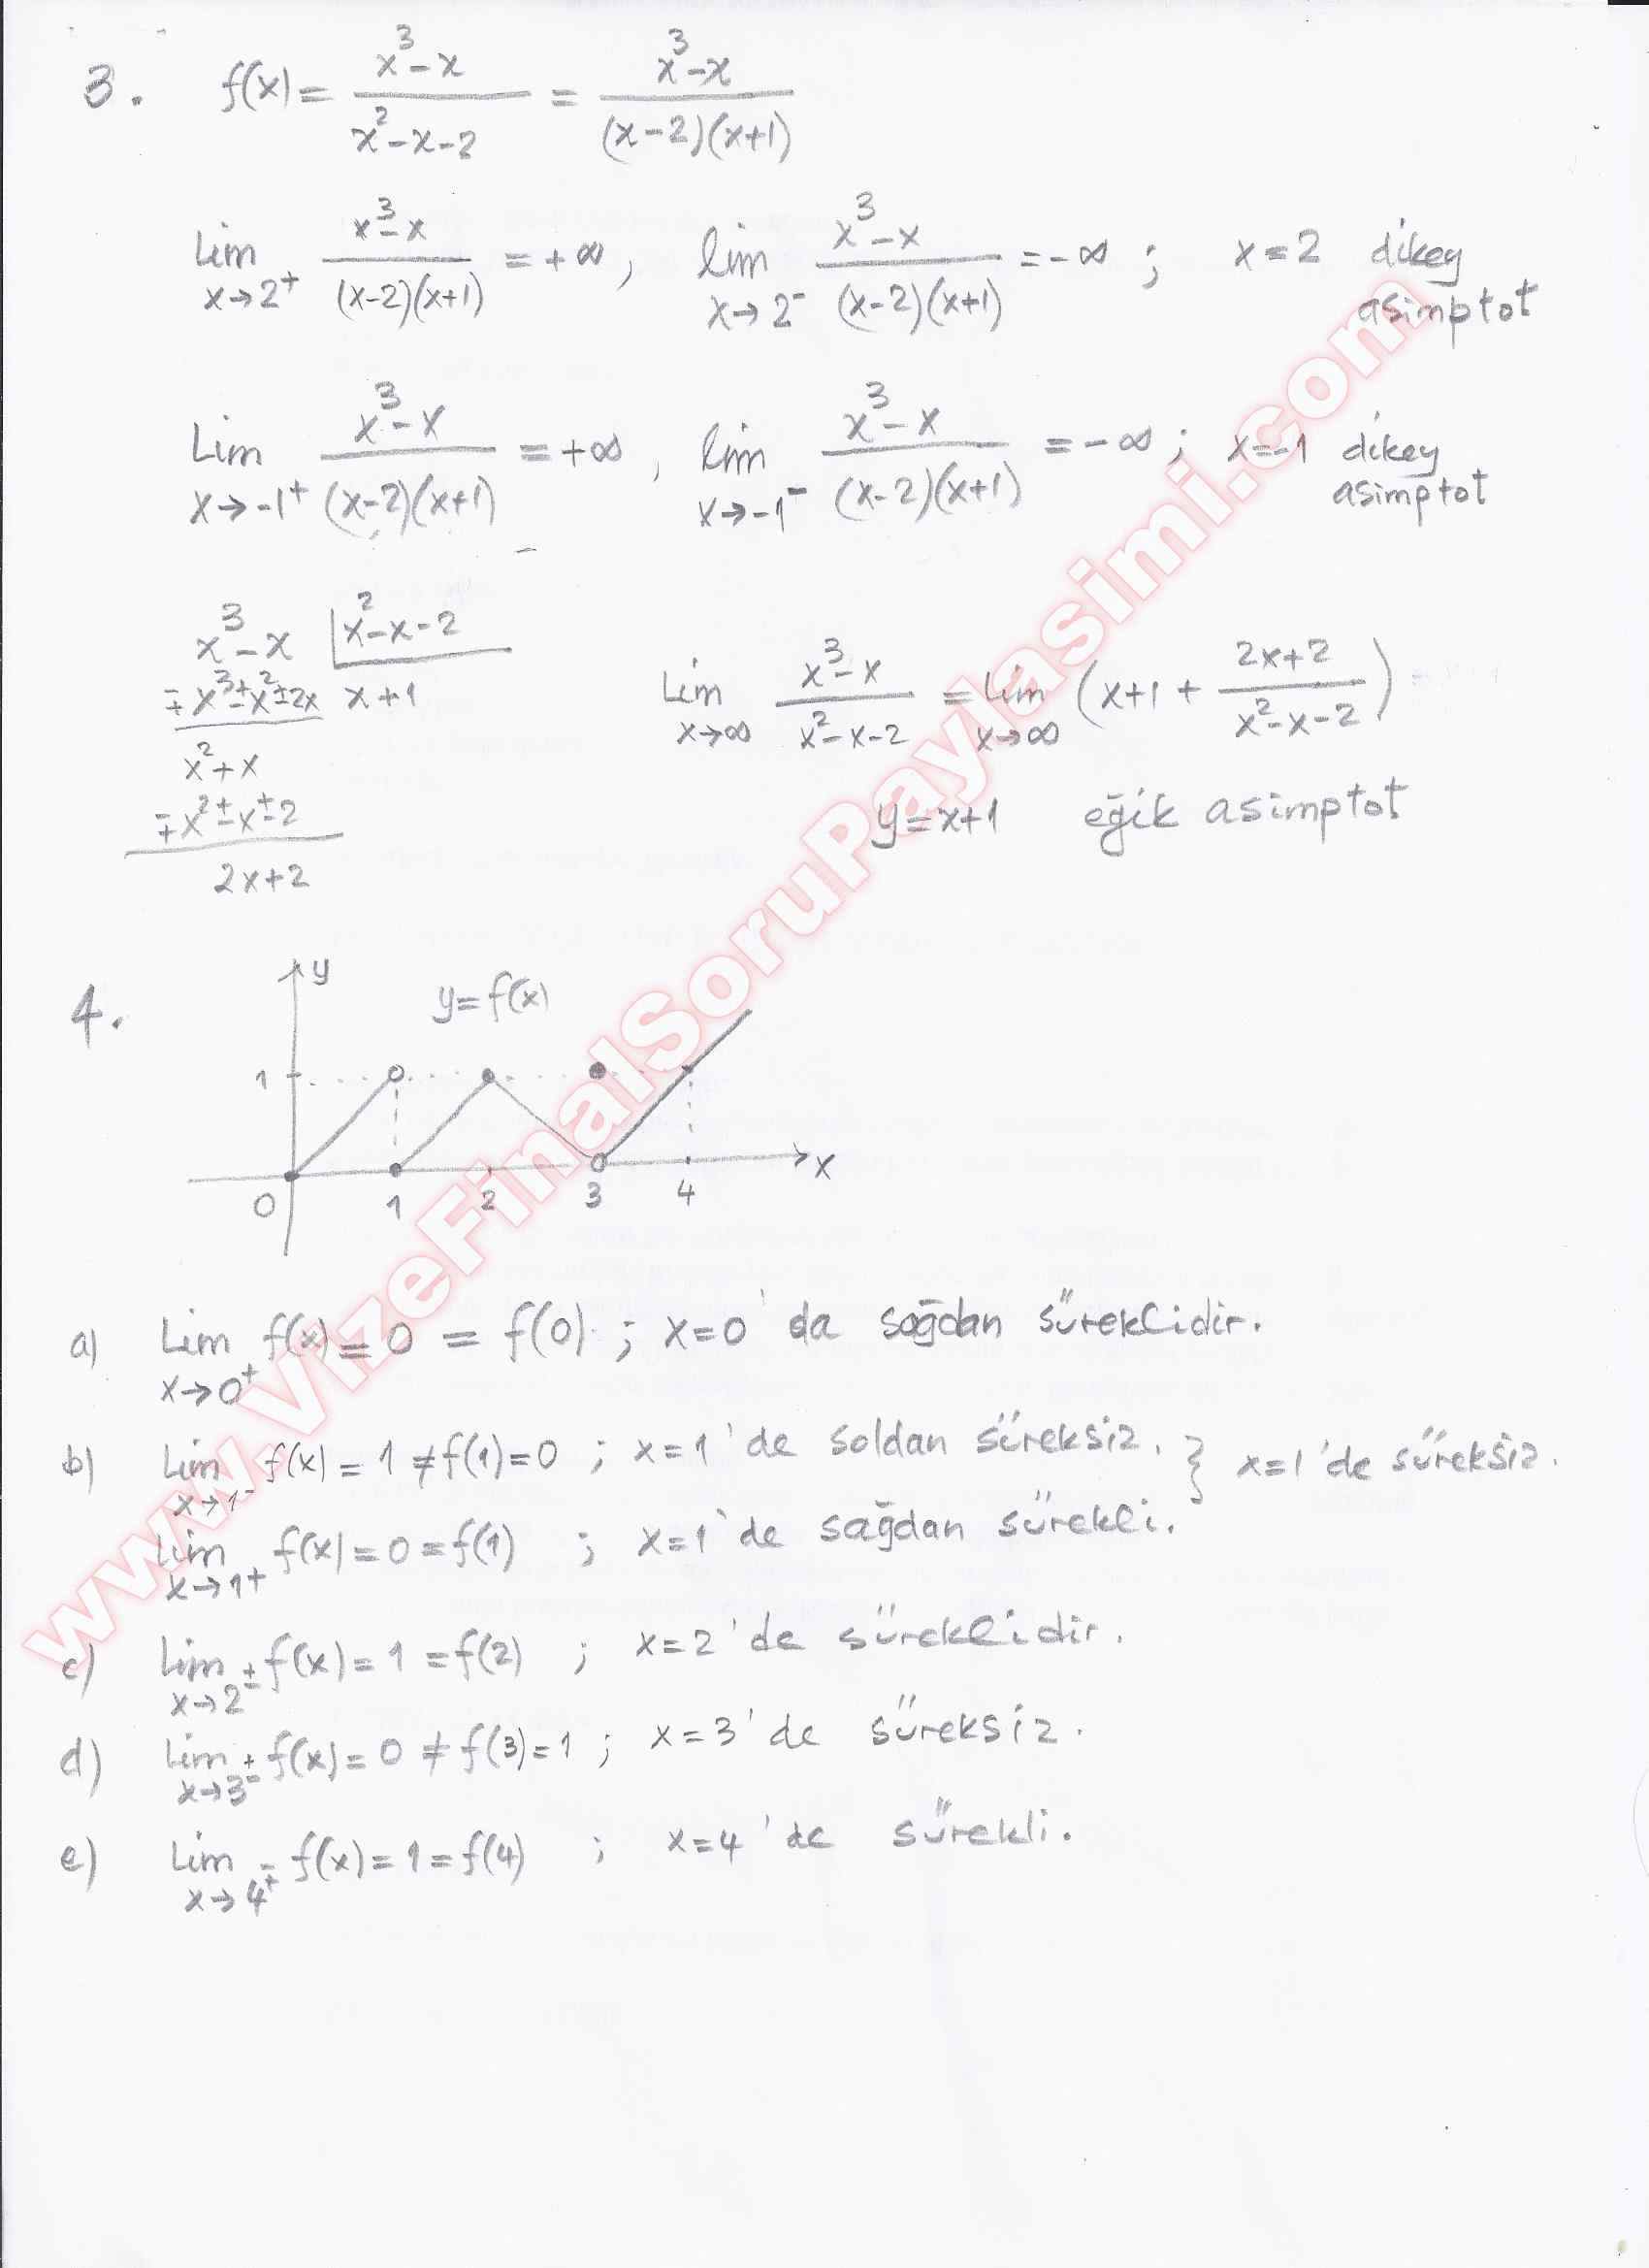 3. f(x) = (x³-x)/(x²-x-2) = (x³-x)/((x-2)(x+1))
Lim x→2⁺ (x³-x)/((x-2)(x+1)) = +∞, lim x→2⁻ (x³-x)/((x-2)(x+1)) = -∞ ; x=2 dikey asimptot
Lim x→-1⁺ (x³-x)/((x-2)(x+1)) = +∞, lim x→-1⁻ (x³-x)/((x-2)(x+1)) = -∞ ; x=-1 dikey asimptot
x³-x | x²-x-2
∓x³±x²±2x x+1
x²+x
∓x²±x±2
2x+2
Lim x→∞ (x³-x)/(x²-x-2) = Lim x→∞ (x+1 + (2x+2)/(x²-x-2))
y=x+1 eğik asimptot
4.
y
y=f(x)
1
0 1 2 3 4 x
a) Lim x→0⁺ f(x) = 0 = f(0) ; x=0'da sağdan süreklidir.
b) Lim x→1⁻ f(x) = 1 ≠ f(1)=0 ; x=1'de soldan süreksiz. } x=1'de süreksiz.
Lim x→1+ f(x)=0=f(1) ; x=1'de sağdan sürekli.
c) Lim x→2± f(x)=1=f(2) ; x=2'de süreklidir.
d) Lim x→3± f(x)=0≠f(3)=1 ; x=3'de süreksiz.
e) Lim x→4∓ f(x)=1=f(4) ; x=4'de sürekli.
www.VizeFinalSoruPaylasimi.com